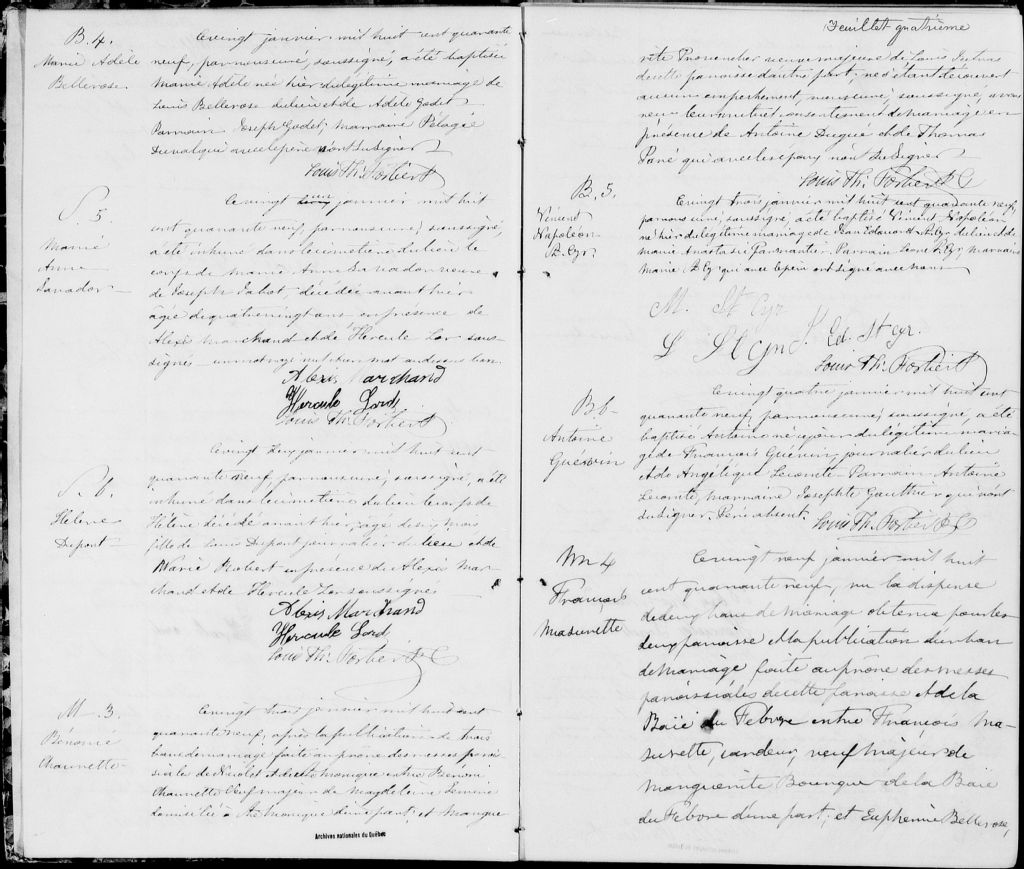 B. 4.
Marie Adèle
Bellerose
Ce vingt janvier mil huit cent quarante
neuf, par nous curé, soussigné, a été baptisée
Marie Adèle née hier du légitime mariage de
Louis Bellerose du lieu et de Adèle Godet
Parrain Joseph Godet, marraine Pélagie
Duval qui avec le père n'ont su signer
Louis Th. Fortier Ptre
S. 5.
Marie
Anne
Lanador
Ce vingt un janvier mil huit
cent quarante neuf, par nous curé, soussigné,
a été inhumé dans le cimetière du lieu le
corps de Marie Anne veuve
de Joseph décédée avant hier
âgée de quatre vingt ans en présence de
Alexis Marchand et de Hercule Lor sous-
signés
Alexis Marchand
Hercule Lord
Louis Th. Fortier Ptre
S. 6.
Hélène
Dupont
Ce vingt deux janvier mil huit cent
quarante neuf, par nous curé, soussigné, a été
inhumé dans le cimetière du lieu le corps de
Hélène décédé avant hier, âgé de six mois
fille de Louis Dupont journalier du lieu et de
Marie Robert en présence de Alexis Mar-
chand et de Hercule Lor soussignés
Alexis Marchand
Hercule Lord
Louis Th. Fortier Ptre C
M 3.
Bénonie
Chaurette
Ce vingt trois janvier mil huit cent
quarante neuf, après la publication de trois
bans de mariage faite au prône des messes parois
siale de Nicolet et de Ste Monique entre Bénoni
Chaurette veuf majeur de Magdeleine
domicilié à Ste Monique d'une part, et Margue
Archives nationales du Québec
Feuillet quatrième
rite veuve majeure de Louis
de cette paroisse d'autre part, ne s'étant découvert
aucun empêchement, nous curé, soussigné, avons
reçu leur mutuel consentement de mariage en
présence de Antoine et de Thomas
qui avec les époux n'ont su signer
Louis Th. Fortier Ptre C
B. 5.
Vincent
Napoléon
St. Cyr.
Ce vingt trois janvier mil huit cent quarante neuf,
par nous curé, soussigné, a été baptisé Vincent Napoléon
né hier du légitime mariage de Jean Edouard St. Cyr du lieu et de
Marie Anastasie Parmantier. Parrain Léon St. Cyr, marraine
Marie St. Cyr qui avec le père ont signé avec nous
M. St Cyr
L St Cyr J. Ed. St Cyr.
Louis Th. Fortier Ptre
B 6
Antoine
Guérin
Ce vingt quatre janvier mil huit cent
quarante neuf, par nous curé, soussigné, a été
baptisé Antoine né ce jour du légitime maria-
ge de François Guérin, journalier du lieu
et de Angélique Lecomte Parrain Antoine
Lecomte, marraine Josephte Gauthier qui n'ont
su signer. Père absent. Louis Th. Fortier Ptre C
M 4
François
Masurette
Ce vingt neuf janvier mil huit
cent quarante neuf, vu la dispense
de deux bans de mariage obtenue pour les
deux paroisse et la publication d'un ban
de mariage faite au prône des messes
paroissiales de cette paroisse et de la
Baie du Febvre entre François Ma-
surette, veuf majeur de
Marguerite Bourque de la Baie
du Febvre d'une part, et Euphémie Bellerose,